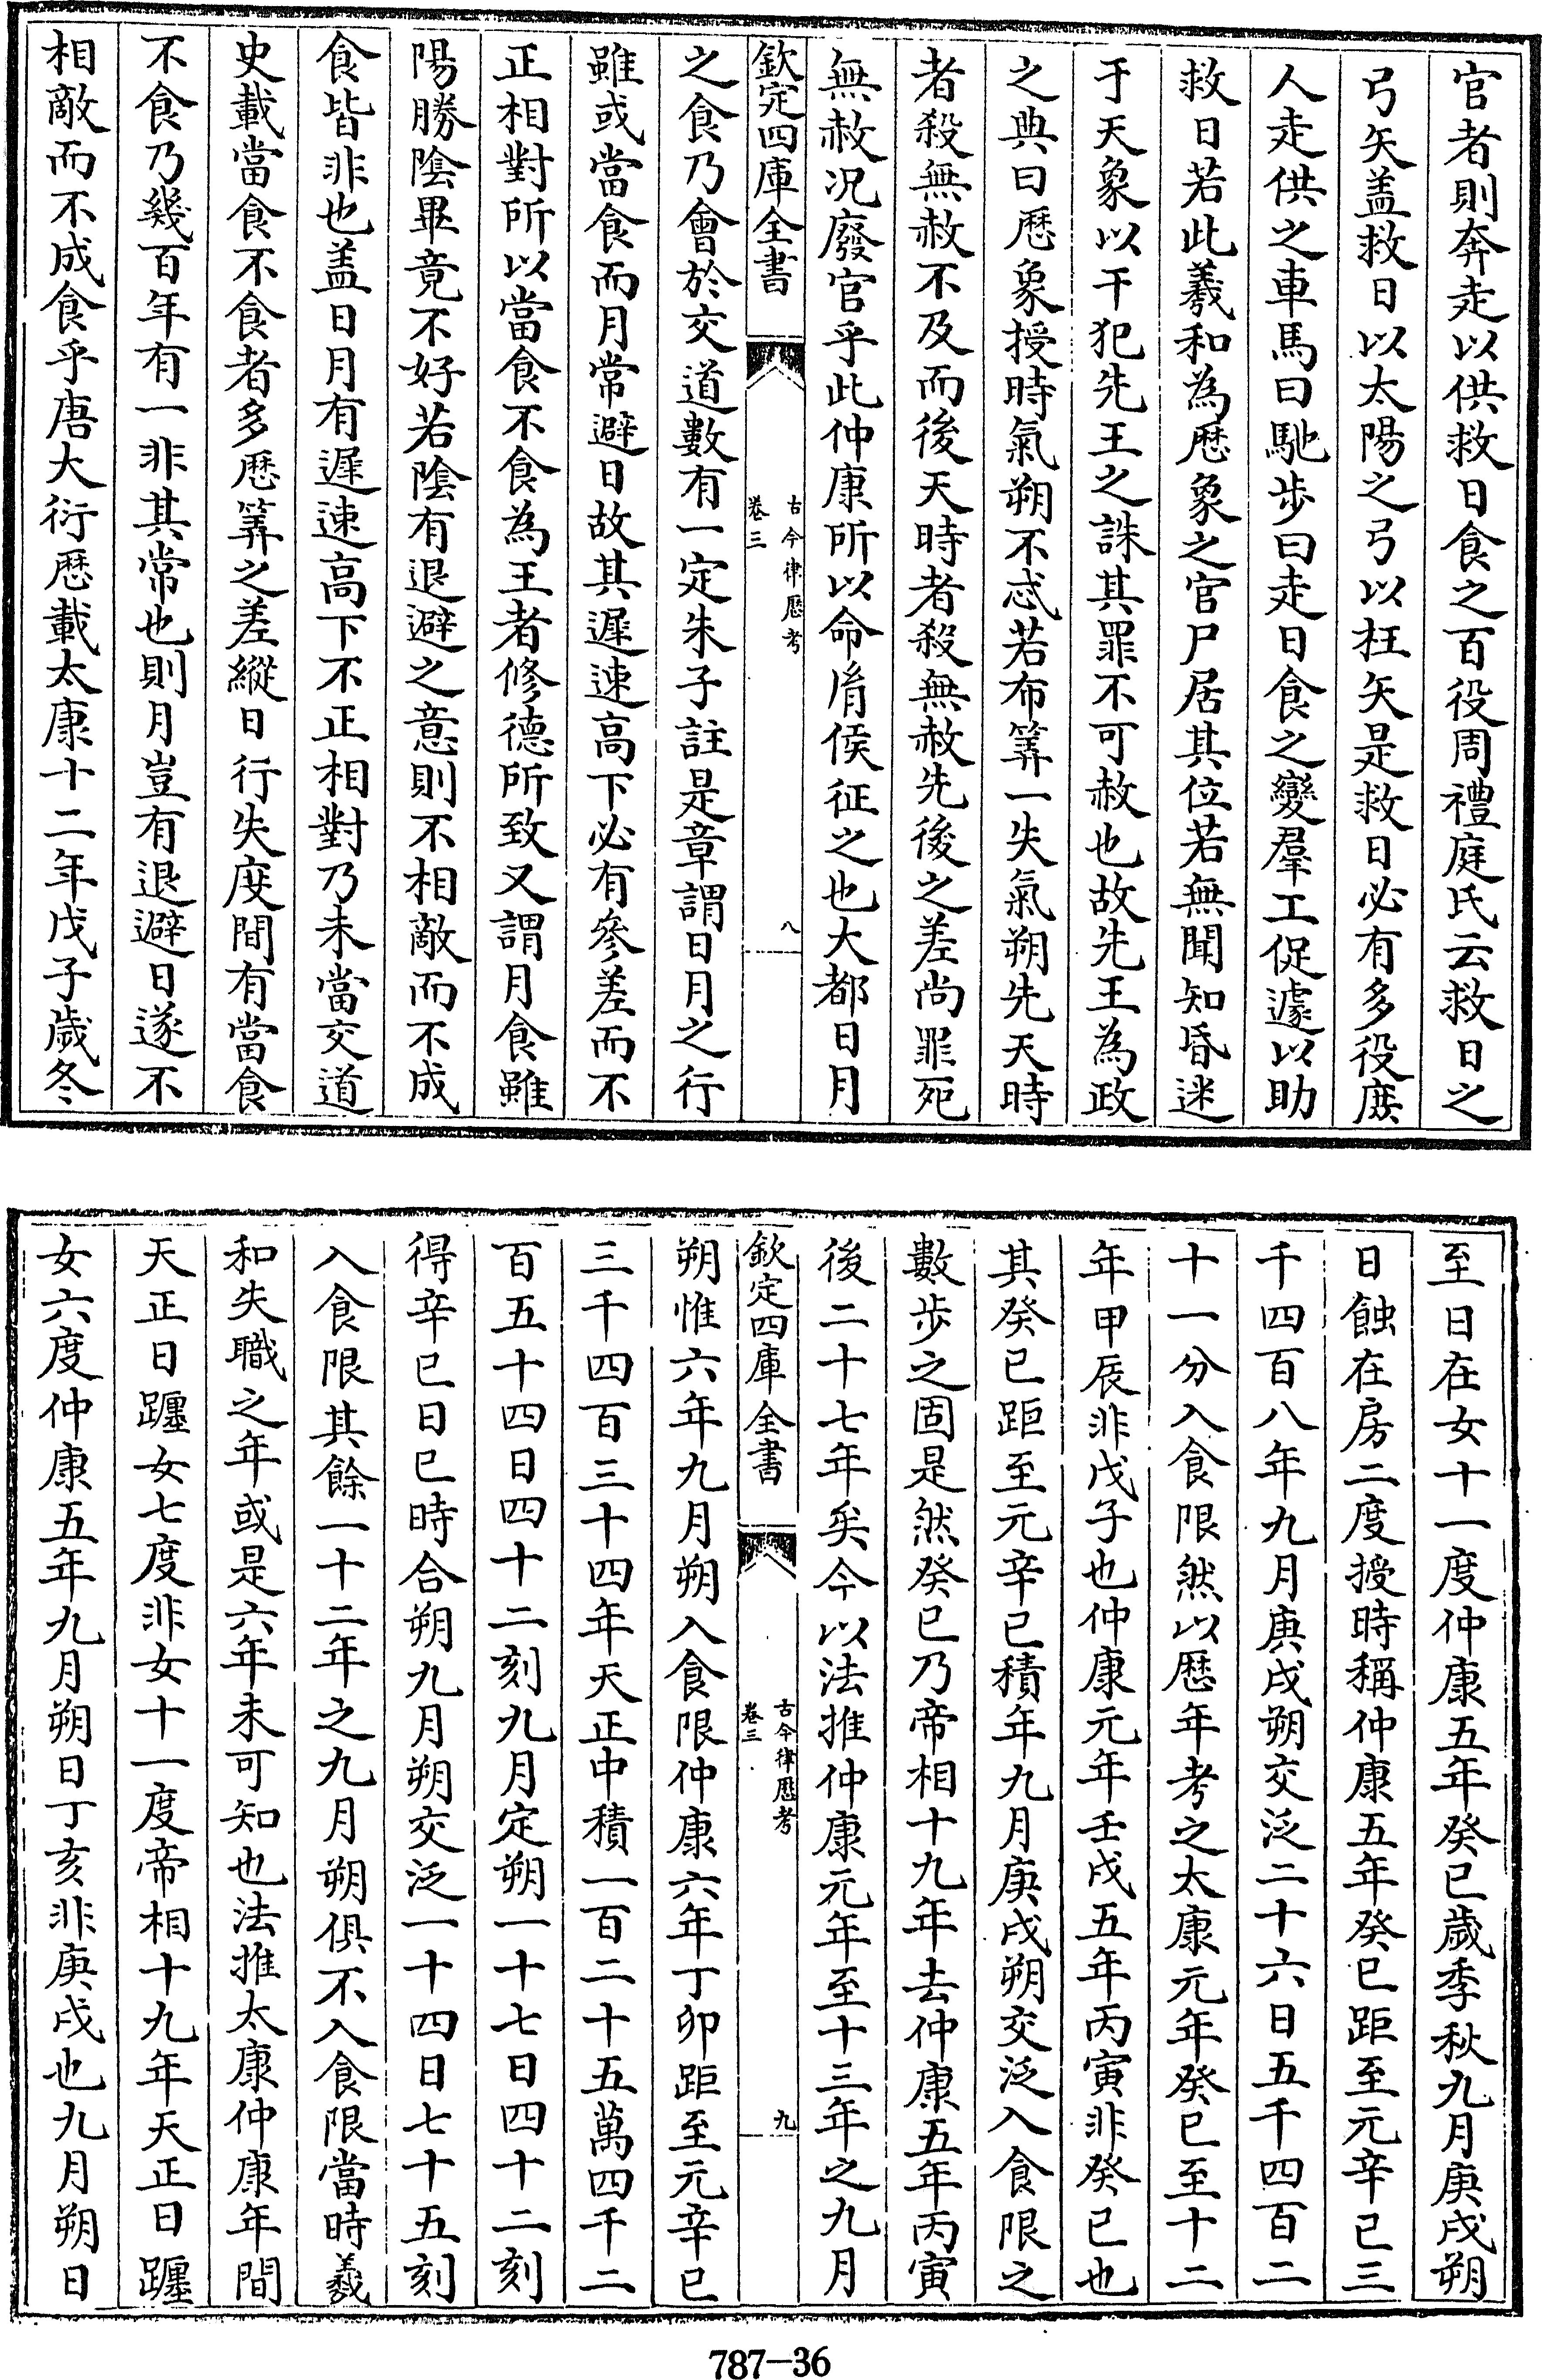 官者則奔走以供救日食之百役周禮庭氏云救日之
弓矢盖救日以太陽之弓以枉矢是救日必有多役庶
人走供之車馬曰馳步曰走日食之變羣工促遽以助
救日若此羲和為厯象之官尸居其位若無聞知昏迷
于天象以干犯先王之誅其罪不可赦也故先王為政
之典曰厯象授時氣朔不忒若布筭一失氣朔先天時
者殺無赦不及而後天時者殺無赦先後之差尚罪死
無赦况廢官乎此仲康所以命胤侯征之也大都日月
欽定四庫全書
古今律厯考
卷三
八
之食乃會於交道數有一定朱子註是章謂日月之行
雖或當食而月常避日故其遲速高下必有參差而不
正相對所以當食不食為王者修德所致又謂月食雖
陽勝陰畢竟不好若陰有退避之意則不相敵而不成
食皆非也盖日月有遲速高下不正相對乃未當交道
史載當食不食者多厯筭之差縱日行失度間有當食
不食乃幾百年有一非其常也則月豈有退避日遂不
相敵而不成食乎唐大衍厯載太康十二年戊子歲冬
至日在女十一度仲康五年癸巳歲季秋九月庚戌朔
日蝕在房二度授時稱仲康五年癸巳距至元辛巳三
千四百八年九月庚戌朔交泛二十六日五千四百二
十一分入食限然以厯年考之太康元年癸巳至十二
年甲辰非戊子也仲康元年壬戌五年丙寅非癸巳也
其癸巳距至元辛巳積年九月庚戌朔交泛入食限之
數步之固是然癸巳乃帝相十九年去仲康五年丙寅
後二十七年矣今以法推仲康元年至十三年之九月
欽定四庫全書
古今律厯考
卷三
九
朔惟六年九月朔入食限仲康六年丁卯距至元辛巳
三千四百三十四年天正中積一百二十五萬四千二
百五十四日四十二刻九月定朔一十七日四十二刻
得辛巳日巳時合朔九月朔交泛一十四日七十五刻
入食限其餘一十二年之九月朔俱不入食限當時羲
和失職之年或是六年未可知也法推太康仲康年間
天正日躔女七度非女十一度帝相十九年天正日躔
女六度仲康五年九月朔日丁亥非庚戌也九月朔日
787-36